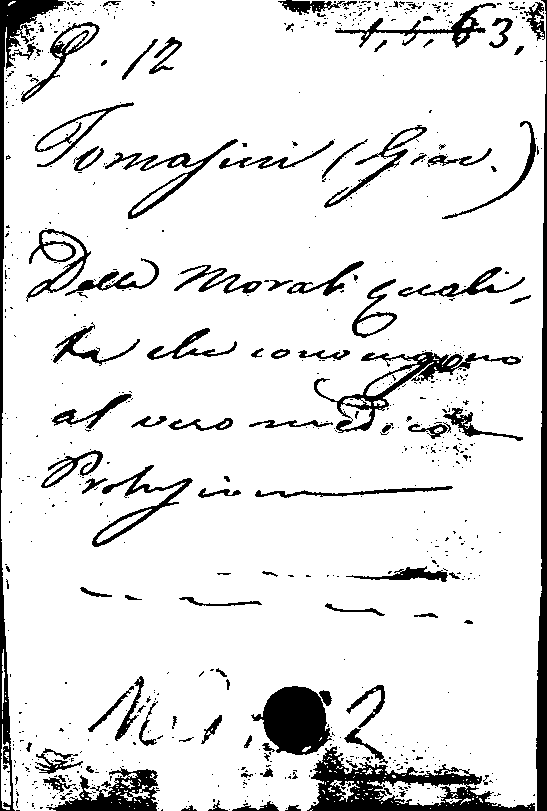 G. 12
1, 5, 63,
Tomasini (Giac.)
Delle Morali quali-
ta che convengono
al vero medico
Prolusione
2